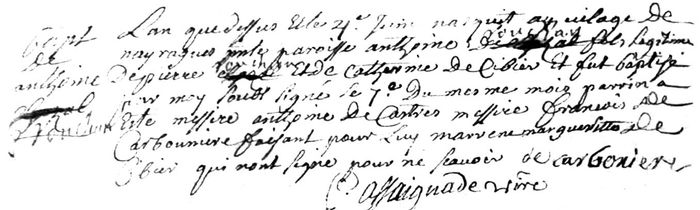 Bapt
de
anthoine
L'an que dessus et le 4e Juin nasquit au vilage de
nayragues pnte paroisse anthoine fils legitime
de pierre et de catherine De Cibier et fut baptisé
par moy soubs signé le 7e du mesme mois parrin a
este messire anthoine de Castres messire francois de
Carbouniere faisant pour luy marrene margueritte de
Cibier qui nont signé pour ne scavoir de carbonier
Cassaignade vire